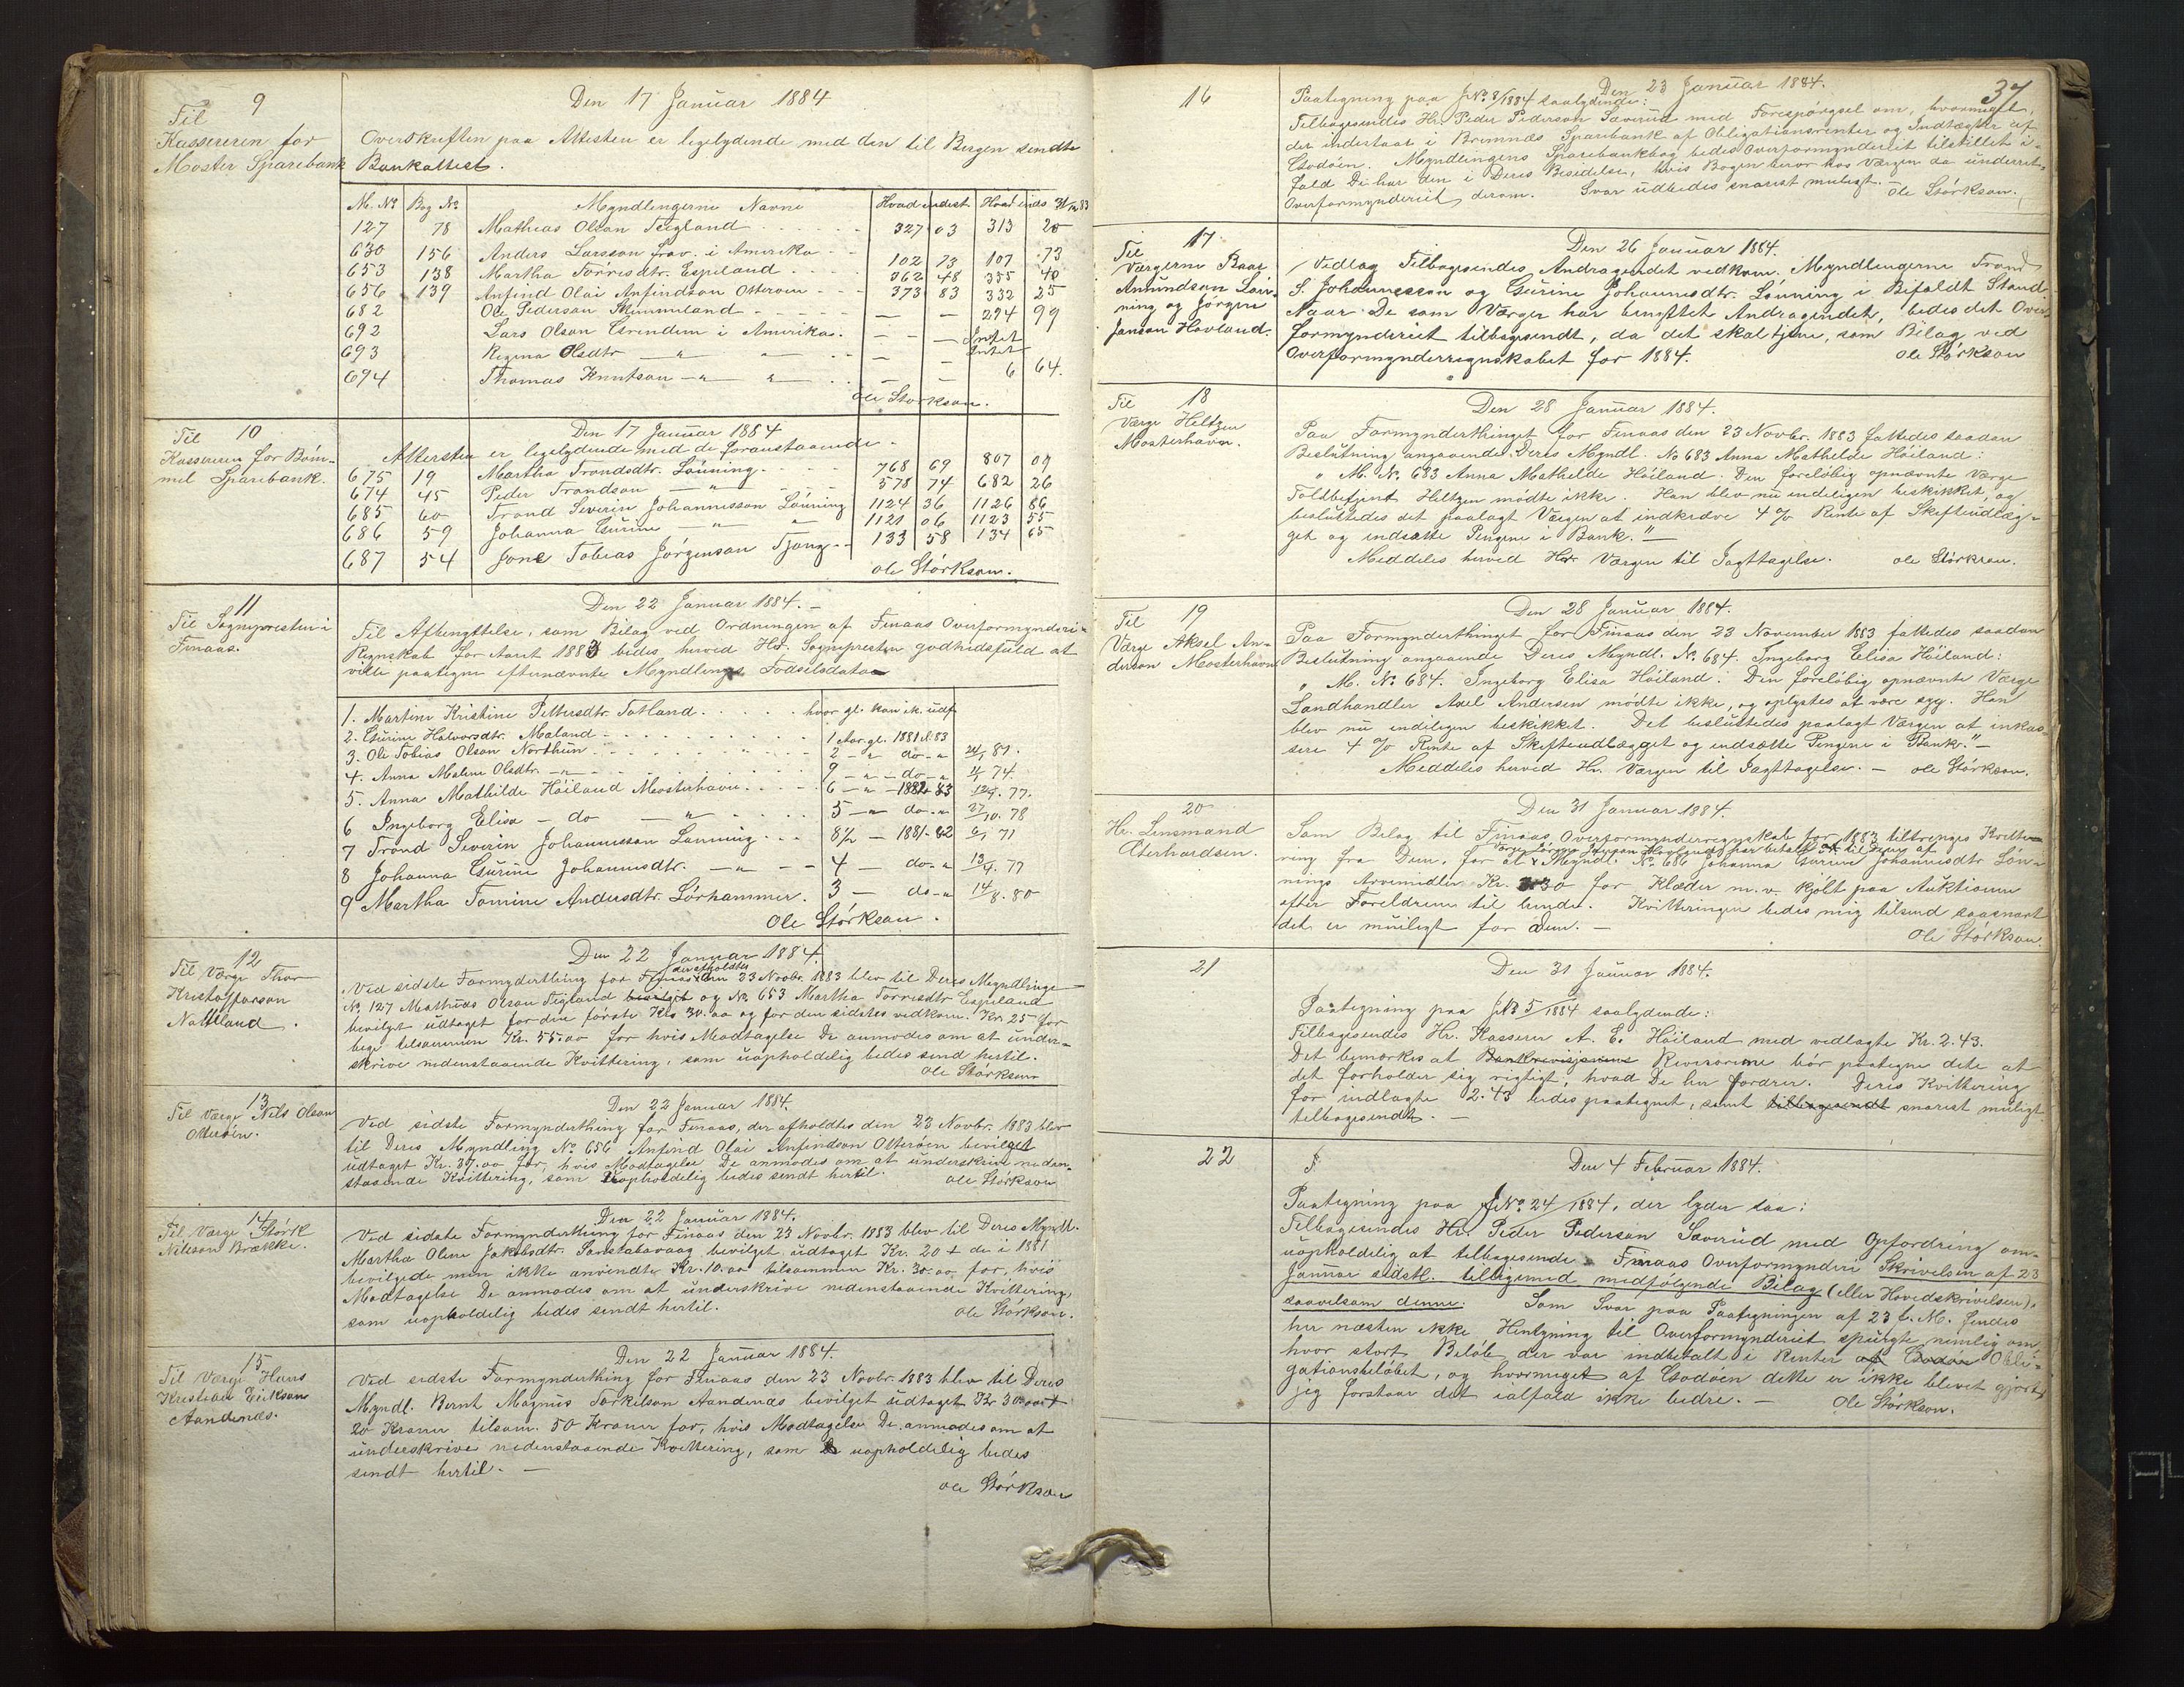 9
Til
Kassereren for
Moster Sparebank
Den 17 Januar 1884
Overskriften paa Attesten er ligelydende med den til Bergen sendte
Bankattest.
M. No Bog No Myndlingerne Navne Hvad indest Hvad inds 31/12 83
127 78 Mathias Olson Teigland 327 03 313 20
630 156 Anders Larsson frav. i Amerika 102 73 107 73
653 138 Martha Torrisdtr. Espeland 362 48 355 40
656 139 Anfind Olai Anfindson Otterøen 373 83 332 25
682 Ole Pederson Skimmeland — — 294 99
692 Lars Olson Grinden i Amerika — — Intet
693 Regina Olsdtr — " — " — — Intet
694 Thomas Knutson — " — " — — 6 64.
Ole Störkson.
10
Til
Kassereren for Böm-
mel Sparebank.
Den 17 Januar 1884
Attesten er ligelydende med de foranstaaende.
675 19 Martha Trondsdtr. Lönning 768 69 807 09
674 45 Peder Trondson — " — 578 74 682 26
685 60 Trond Severin Johannesson Lönning 1124 36 1126 86
686 59 Johanna Gurine — " — " 1121 06 1123 55
687 54 Jone Tobias Jörgenson Tjong 133 58 134 65
Ole Störkson.
11
Til Sognepresten i
Finaas.
Den 22 Januar 1884.
Til Afbenyttelse, som Bilag ved Ordningen af Finaas Overformynderi-
Regnskab for Aaret 1883 bedes herved Hr. Sognepresten godhedsfuld at
ville paategne efternævnte Myndlings Födselsdata
1. Martine Kristine Pettersdtr. Totland hvor gl. kan ik. udf.
2. Gurine Halvorsdtr. Maland 1 Aar gl. 1881 & 83
3. Ole Tobias Olson Northun 2 — " do — " 24/1 81.
4. Anna Malene Olsdtr. — " — 9 — " — do — " 4/1 74.
5. Anna Mathilde Höiland Mosterhavn 6 — " — 1882 & 83 12/9. 77.
6 Ingeborg Elisa — do — " 5 — " do — " 27/10. 78
7 Trond Severin Johannesson Lönning 8½ — 1881-82 6/1 71
8 Johanna Gurine Johannesdtr. — " — 4 — do — " 13/4. 77
9 Martha Tomine Andersdtr. Lörhammer. 3 — do — " 14/8. 80
Ole Störkson.
12
Til Værge Thor
Kristofferson
Nattland.
Den 22 Januar 1884.
Ved sidste Formynderthing for Finaas der afholdtes den 23 Novbr. 1883 blev til Deres Myndlinge
No. 127 Mathias Olson Teigland bevilget og No 653 Martha Torrisdtr Espeland
bevilget udtaget for den förste Kr. 30.00 og for den sidstes vedkom. Kr. 25 for
bege tilsammen Kr. 55.00 for hvis Modtagelse De anmodes om at under-
skrive nedenstaaende Kvittering, som uopholdelig bedes send hertil.
Ole Störkson
13
Til Værge Nils Olson
Otteröen.
Den 22 Januar 1884.
Ved sidste Formynderthing for Finaas, der afholdtes den 23 Novbr. 1883 blev
til Deres Myndling No 656 Anfind Olai Anfindson Otteröen bevilget
udtaget Kr. 37.00 for, hvis Modtagelse De anmodes om at underskrive neden-
staaende Kvittering, som uopholdelig bedes sendt hertil
Ole Störkson
14
Til Værge Störk
Nilsson Brække.
Den 22 Januar 1884.
Ved sidste Formynderthing for Finaas den 23 Novbr. 1883 blev til Deres Myndl.
Martha Oline Jakobsdtr. Sønstabøvaag bevilget udtaget Kr. 20 + de i 1881
bevilgede men ikke anvendte Kr. 10.00 tilsammen Kr. 30.00 for, hvis
Modtagelse De anmodes om at underskrive nedenstaaende Kvittering,
som uopholdelig bedes sendt hertil.
Ole Störkson.
15
Til Værge Hans
Kristian Eirikson
Aandenes.
Den 22 Januar 1884.
Ved sidste Formynderthing for Finaas den 23 Novbr. 1883 blev til Deres
Myndl. Bernt Magnus Torkelson Aandenæs bevilget udtaget Kr 30.00 +
20 Kroner tilsam. 50 Kroner for, hvis Modtagelse De anmodes om at
underskrive nedenstaaende Kvittering, som uopholdelig bedes
sendt hertil. —
Ole Störkson
37
16
Den 23 Januar 1884.
Paategning paa J No 8/1884 saalydende:
Tilbagesendes Hr. Peder Pederson Sæverud med Forespörgsel om, hvormeget
der indestaar i Bremnæs Sparebank af Obligationsrenter og Indtægter af
Godöen. Myndlingens Sparebankbog bedes Overformynderiet tilstillet i-
fald De har den i Deres Besidelse, hvis Bogen beror hos Værgen da underret-
Overformynderiet derom. Svar udbedes snarest muligt. Ole Störkson.
17
Til
Værgerne Baar
Amundson Lön-
ning og Jörgen
Janson Hovland.
Den 26 Januar 1884.
Vedlag Tilbagesendes Andragendet vedkom. Myndlingerne Trond
S. Johannesson og Gurine Johannesdtr. Lönning i Bifaldt Stand
Naar De som Værger har benyttet Andragendet, bedes det Over-
formynderiet tilbagesendt, da det skal tjene, som Bilag ved
Overformynderregnskabet for 1884.
Ole Störkson
18
Til
Værge Heltzen
Mosterhavn.
Den 28 Januar 1884.
Paa Formynderthinget for Finaas den 23 Novbr. 1883 fattedes saadan
Beslutning angaaende Deres Myndl. No 683 Anna Mathilde Höiland:
" M. No. 683 Anna Mathilde Höiland. Den forelöbig opnævnte Værge
Toldbetjent Heltzen mödte ikke. Han blev nu endeligen beskikket, og
besluttedes det paalagt Værgen at indkræve 4 % Rente af Skifteudlæg-
get og indsætte Pengene i Bank." —
Meddeles herved Hr. Værgen til Iagttagelse. Ole Störkson.
19
Til
Værge Aksel An-
derson Mosterhavn
Den 28 Januar 1884.
Paa Formynderthinget for Finaas den 23 November 1883 fattedes saadan
Beslutning angaaende Deres Myndl. No. 684. Ingeborg Elisa Höiland:
" M. No. 684. Ingeborg Elisa Höiland. Den forelöbig opnævnte Værge
Landhandler Axel Andersen mödte ikke, og oplystes at være syg. Han
blev nu endeligen beskikket. Det besluttedes paalagt Værgen at inkas-
sere 4 % Rente af Skifteudlægget og indsætte Pengene i Bank." —
Meddeles herved Hr. Værgen til Iagttagelse. — Ole Störkson.
20
Hr. Lensmand
Eterhardsen.
Den 31 Januar 1884.
Som Bilag til Finaas Overformynderregnskab for 1883 tiltrenges Kvitte-
Værge Jörgen Janson Hovland har betalt til Dem af
ring fra Dem, for at Myndl. No. 686 Johanna Gurine Johannesdtr Lön-
nings Arvemidler Kr. 30 for Klæder m.v. kjöbt paa Auktionen
efter Foreldrene til hende. Kvitteringen bedes mig tilsend saasnart
det er muligt for Dem. —
Ole Störkson.
21
Den 31 Januar 1884.
Paategning paa J No 5/1884 saalydende:
Tilbagesendes Hr. Kasserer A. E. Höiland med vedlagte Kr. 2.43.
Det bemærkes at Bankrevisjonens Revisorerne bör paategne dete at
det forholder sig rigtigt, hvad De her fordrer. Deres Kvittering
for indlagte 2.43 bedes paategnet, samt tilbagesendt snarest muligt
tilbagesendt. —
22
Den 4 Februar 1884.
Paategning paa J No. 24/1884, der lyder saa:
Tilbagesendes Hr. Peder Pederson Sæverud med Opfordring om
uopholdelig at tilbagesende Finaas Overformynderi Skrivelsen af 23
Januar sidstl. tilligemed medfölgende Bilag (eller Hovedskrivelsen),
saavelsom denne. Som Svar paa Paategningen af 23 f. M. findes
her næsten ikke Hentyning til Overformynderiet spurgte nemlig om
hvor stort Belöb der var indbetalt i Renter af Godöen Obli-
gationsbelöbet, og hvormeget af Godöen dette er ikke blevet gjort,
jeg forstaar det ialfald ikke bedre. — Ole Störkson.